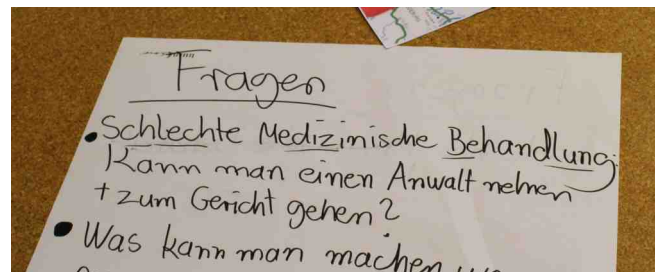 Fragen
• Schlechte Medizinische Behandlung.
Kann man einen Anwalt nehmen
+ zum Gericht gehen?
• Was kann man machen